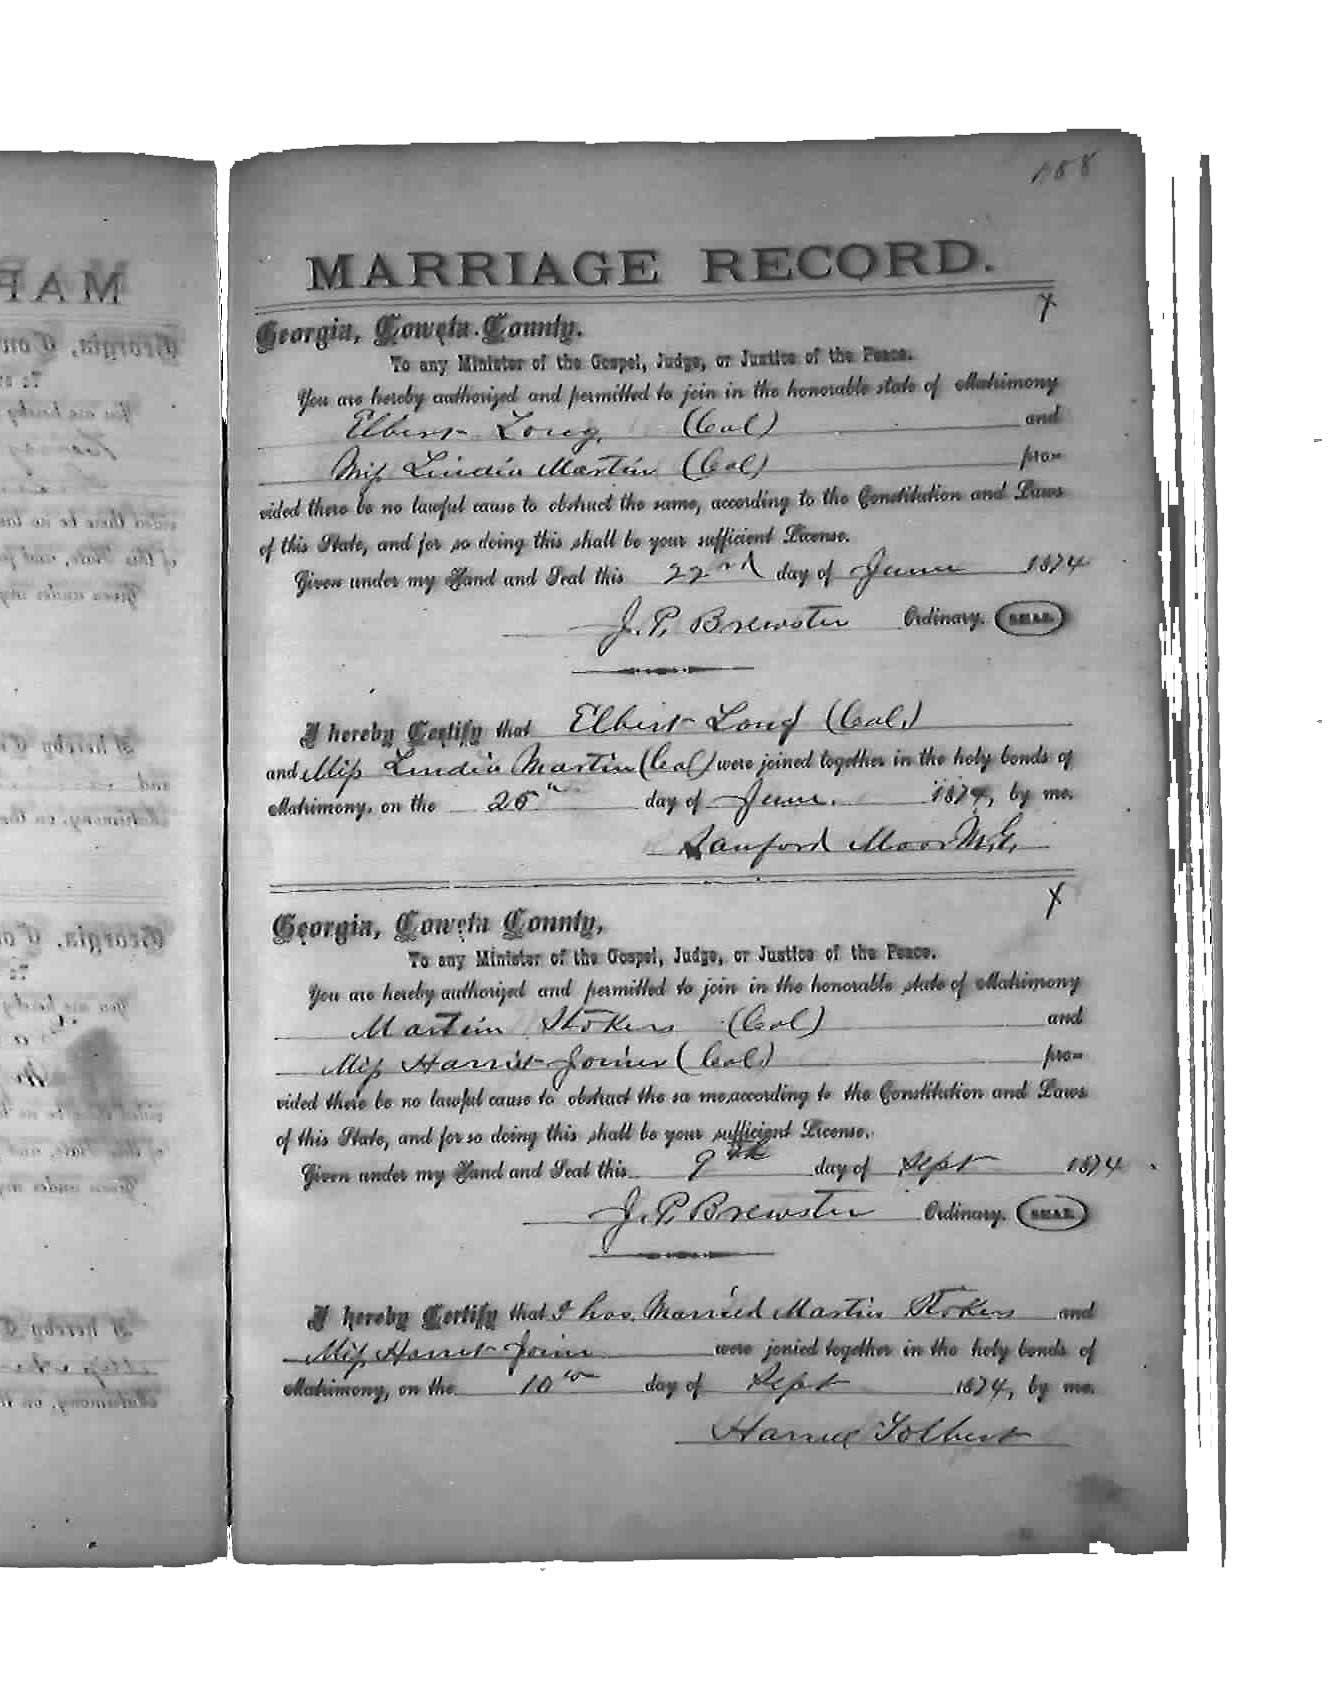 158
MARRIAGE RECORD.
Georgia, Coweta County.
To any Minister of the Gospel, Judge, or Justice of the Peace.
You are hereby authorized and permitted to join in the honorable state of Matrimony
Elbert Long, (Col) and
Miss Lindia Martin (Col) pro-
vided there be no lawful cause to obstruct the same, according to the Constitution and Laws
of this State, and for so doing this shall be your sufficient License.
Given under my Hand and Seal this 22nd day of June 1874
J. P. Brewster Ordinary. SEAL.
I hereby Certify that Elbert Long (Col.)
and Miss Lindia Martin (Col) were joined together in the holy bonds of
Matrimony, on the 25th day of June. 1874, by me.
Sanford Moor M.G.
Georgia, Coweta County,
To any Minister of the Gospel, Judge, or Justice of the Peace.
You are hereby authorized and permitted to join in the honorable state of Matrimony
Martin Stokers (Col) and
Miss Harriet Joiner (Col) pro-
vided there be no lawful cause to obstruct the sa me, according to the Constitution and Laws
of this State, and for so doing this shall be your sufficient License.
Given under my Hand and Seal this 9th day of Sept 1874
J. P. Brewster Ordinary. SEAL.
I hereby Certify that I has Married Martin Stokers and
Miss Harriet Join were jonied together in the holy bonds of
Matrimony, on the 10th day of Sept 1874, by me.
Tolbert